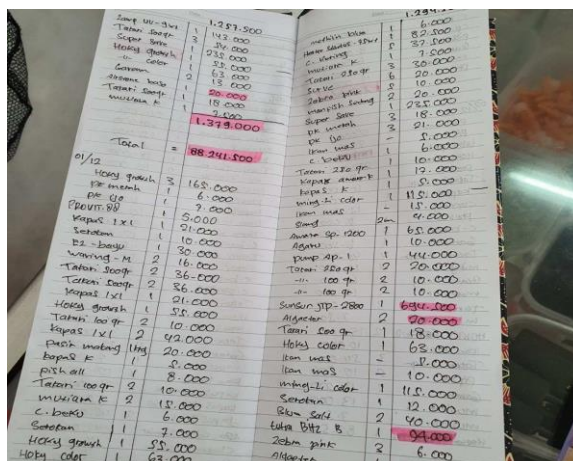 1.257.500
Tatari 500gr 1 143.000
Super Save 3 54.000
Hoky growth 1 235.000
-"- color 1 55.000
Garam 2 63.000
13.000
Tatari 500gr 1 20.000
mutiara K 1 18.000
7.500
1.379.000
Total = 88.241.500
01/12
Hoky growth 3 165.000
PK merah 1 6.000
PK ijo 1 7.000
PROVIT.88 1 5.000
Kapas 1x1 1 21.000
Serokan 1 10.000
1 30.000
waring - M 2 16.000
Tatari 500gr 2 36.000
Tatari 500gr 2 36.000
Kapas 1x1 1 21.000
Hoky growth 1 55.000
Tatari 100 gr 2 10.000
Kapas 1x1 2 42.000
pasir malang 1kg 20.000
kapas K 1 5.000
pish all 1 8.000
Tatari 100 gr 2 10.000
mutiara K 2 15.000
C. beku 1 6.000
Serokan 1 7.000
Hoky growth 1 55.000
Hoky color 1 63.000
methilin blue 1 6.000
1 82.500
C. waring 5 37.500
mutiara K 1 7.500
Tatari 250 gr 3 30.000
6 20.000
Zebra pink 2 10.000
2 20.000
Super Save 1 235.000
PK merah 3 18.000
PK ijo 3 21.000
Ikan mas - 5.000
C. beku 1 6.000
Tatari 250 gr 1 10.000
Kapas 1 12.000
kapas K 1 5.000
ming-Li color 1 115.000
Ikan mas - 15.000
Slang 2m 4.000
Awara Sp-1200 1 65.000
Agaru 1 10.000
pump Ap-1 1 44.000
Tatari 250gr 2 20.000
-"- 100 gr 2 10.000
-"- 100 gr 2 10.000
SunSun JTP-2800 1 694.500
Algaetor 2 20.000
Tatari 500 gr 1 18.000
Hoky color 1 63.000
Ikan mas - 5.000
Ikan mas - 10.000
ming-Li color 1 115.000
Serokan 1 12.000
Blue Salt 2 40.000
1 94.000
Zebra pink 3 6.000
Algaetor